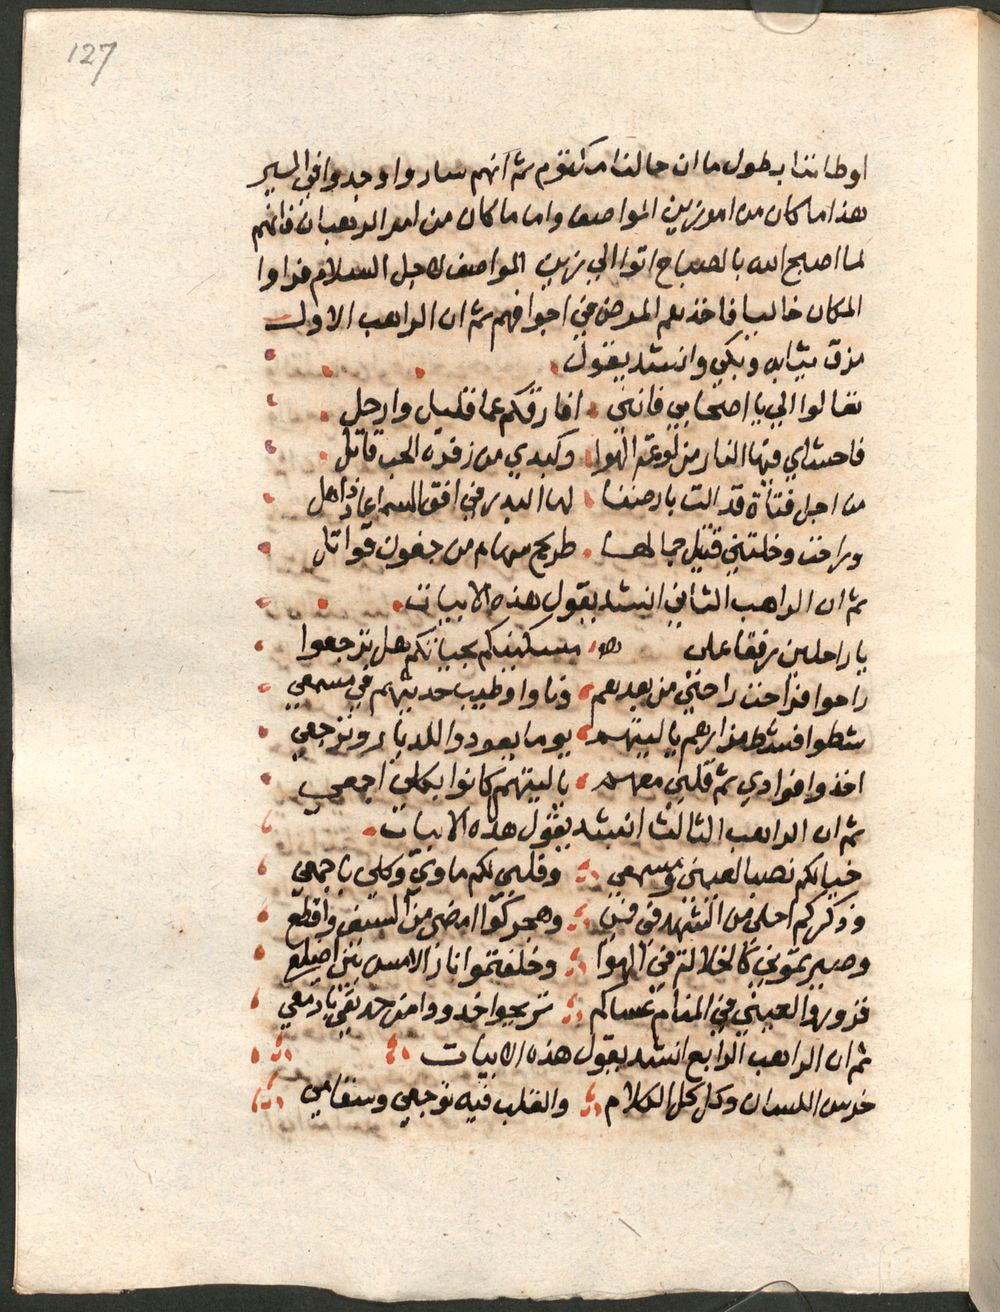 127
اوطاننا بطول ما ان حالنا مكتوم ثم انهم ساروا وجدوا في المسير
هذا ما كان من امر زين المواصف واما ما كان من امر الرهبان فانهم
لما اصبح الله بالصباح اتوا الي زين المواصف لاجل السلام فراوا
المكان خاليا فاخذهم المرض في اجوافهم ثم ان الراهب الاول
مزق ثيابه وبكي وانشد يقول
تعالوا الي يا اصحابي فانني افارقكم عما قليل وارحل
فاحشاي فيها النار من لوعة الهوا وكبدي من زفرة الحب قاتل
من اجل فتاة قد اتت بارضنا لها البدر في افق السما
وراحت وخلتني قتيل جمالها طريح سهام من جفون قواتل
ثم ان الراهب الثاني انشد يقول هذه الابيات
يا راحلين رفقا علي مسكينكم بحياتكم هل ترجعوا
راحوا فراحت راحتي من بعدهم وناوا وطيب حديثهم في مسمعي
شطوا فشط مزارهم يا ليتهم يوما يعودوا للديار وترجعي
اخذوا فوادي ثم قلبي معهم يا ليتهم كانوا بكلي اجمعي
ثم ان الراهب الثالث انشد يقول هذه الابيات
خيالكم نصب العيني ومسمعي وقلبي لكم ماوي وكلي باجمعي
وذكركم احلي من الشهد في فمي وهجركموا امضي من السيف واقطع
وصيرتموني كالخلالة في الهوا وخلفتموا نار الاسي بين اضلع
فزوروا العيني في المنام عساكم تريحوا خدودا من تقي بادمعي
ثم ان الراهب الرابع انشد يقول هذه الابيات
خرس اللسان وكل كل الكلام والقلب فيه توجعي وسقامي